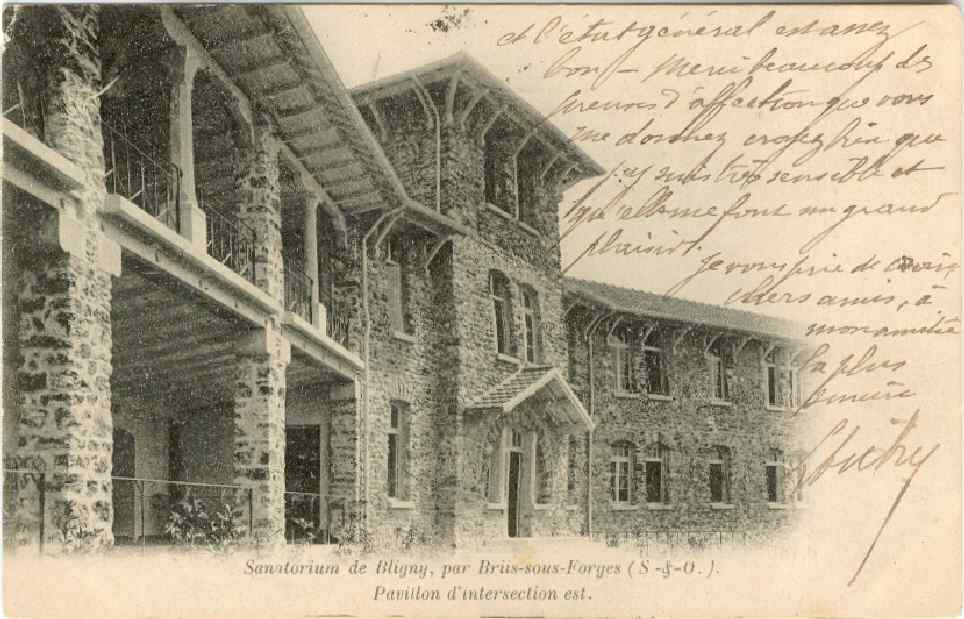 et l'état général est assez
bon — merci beaucoup des
preuves d'affection que vous
me donnez croyez bien que
j'y suis très sensible et
qu'elle me font un grand
plaisir.
je vous prie de croire
chers amis, à
mon amitié
la plus
sincère
Sanatorium de Bligny, par Briis-sous-Forges (S-&-O.).
Pavillon d'intersection est.